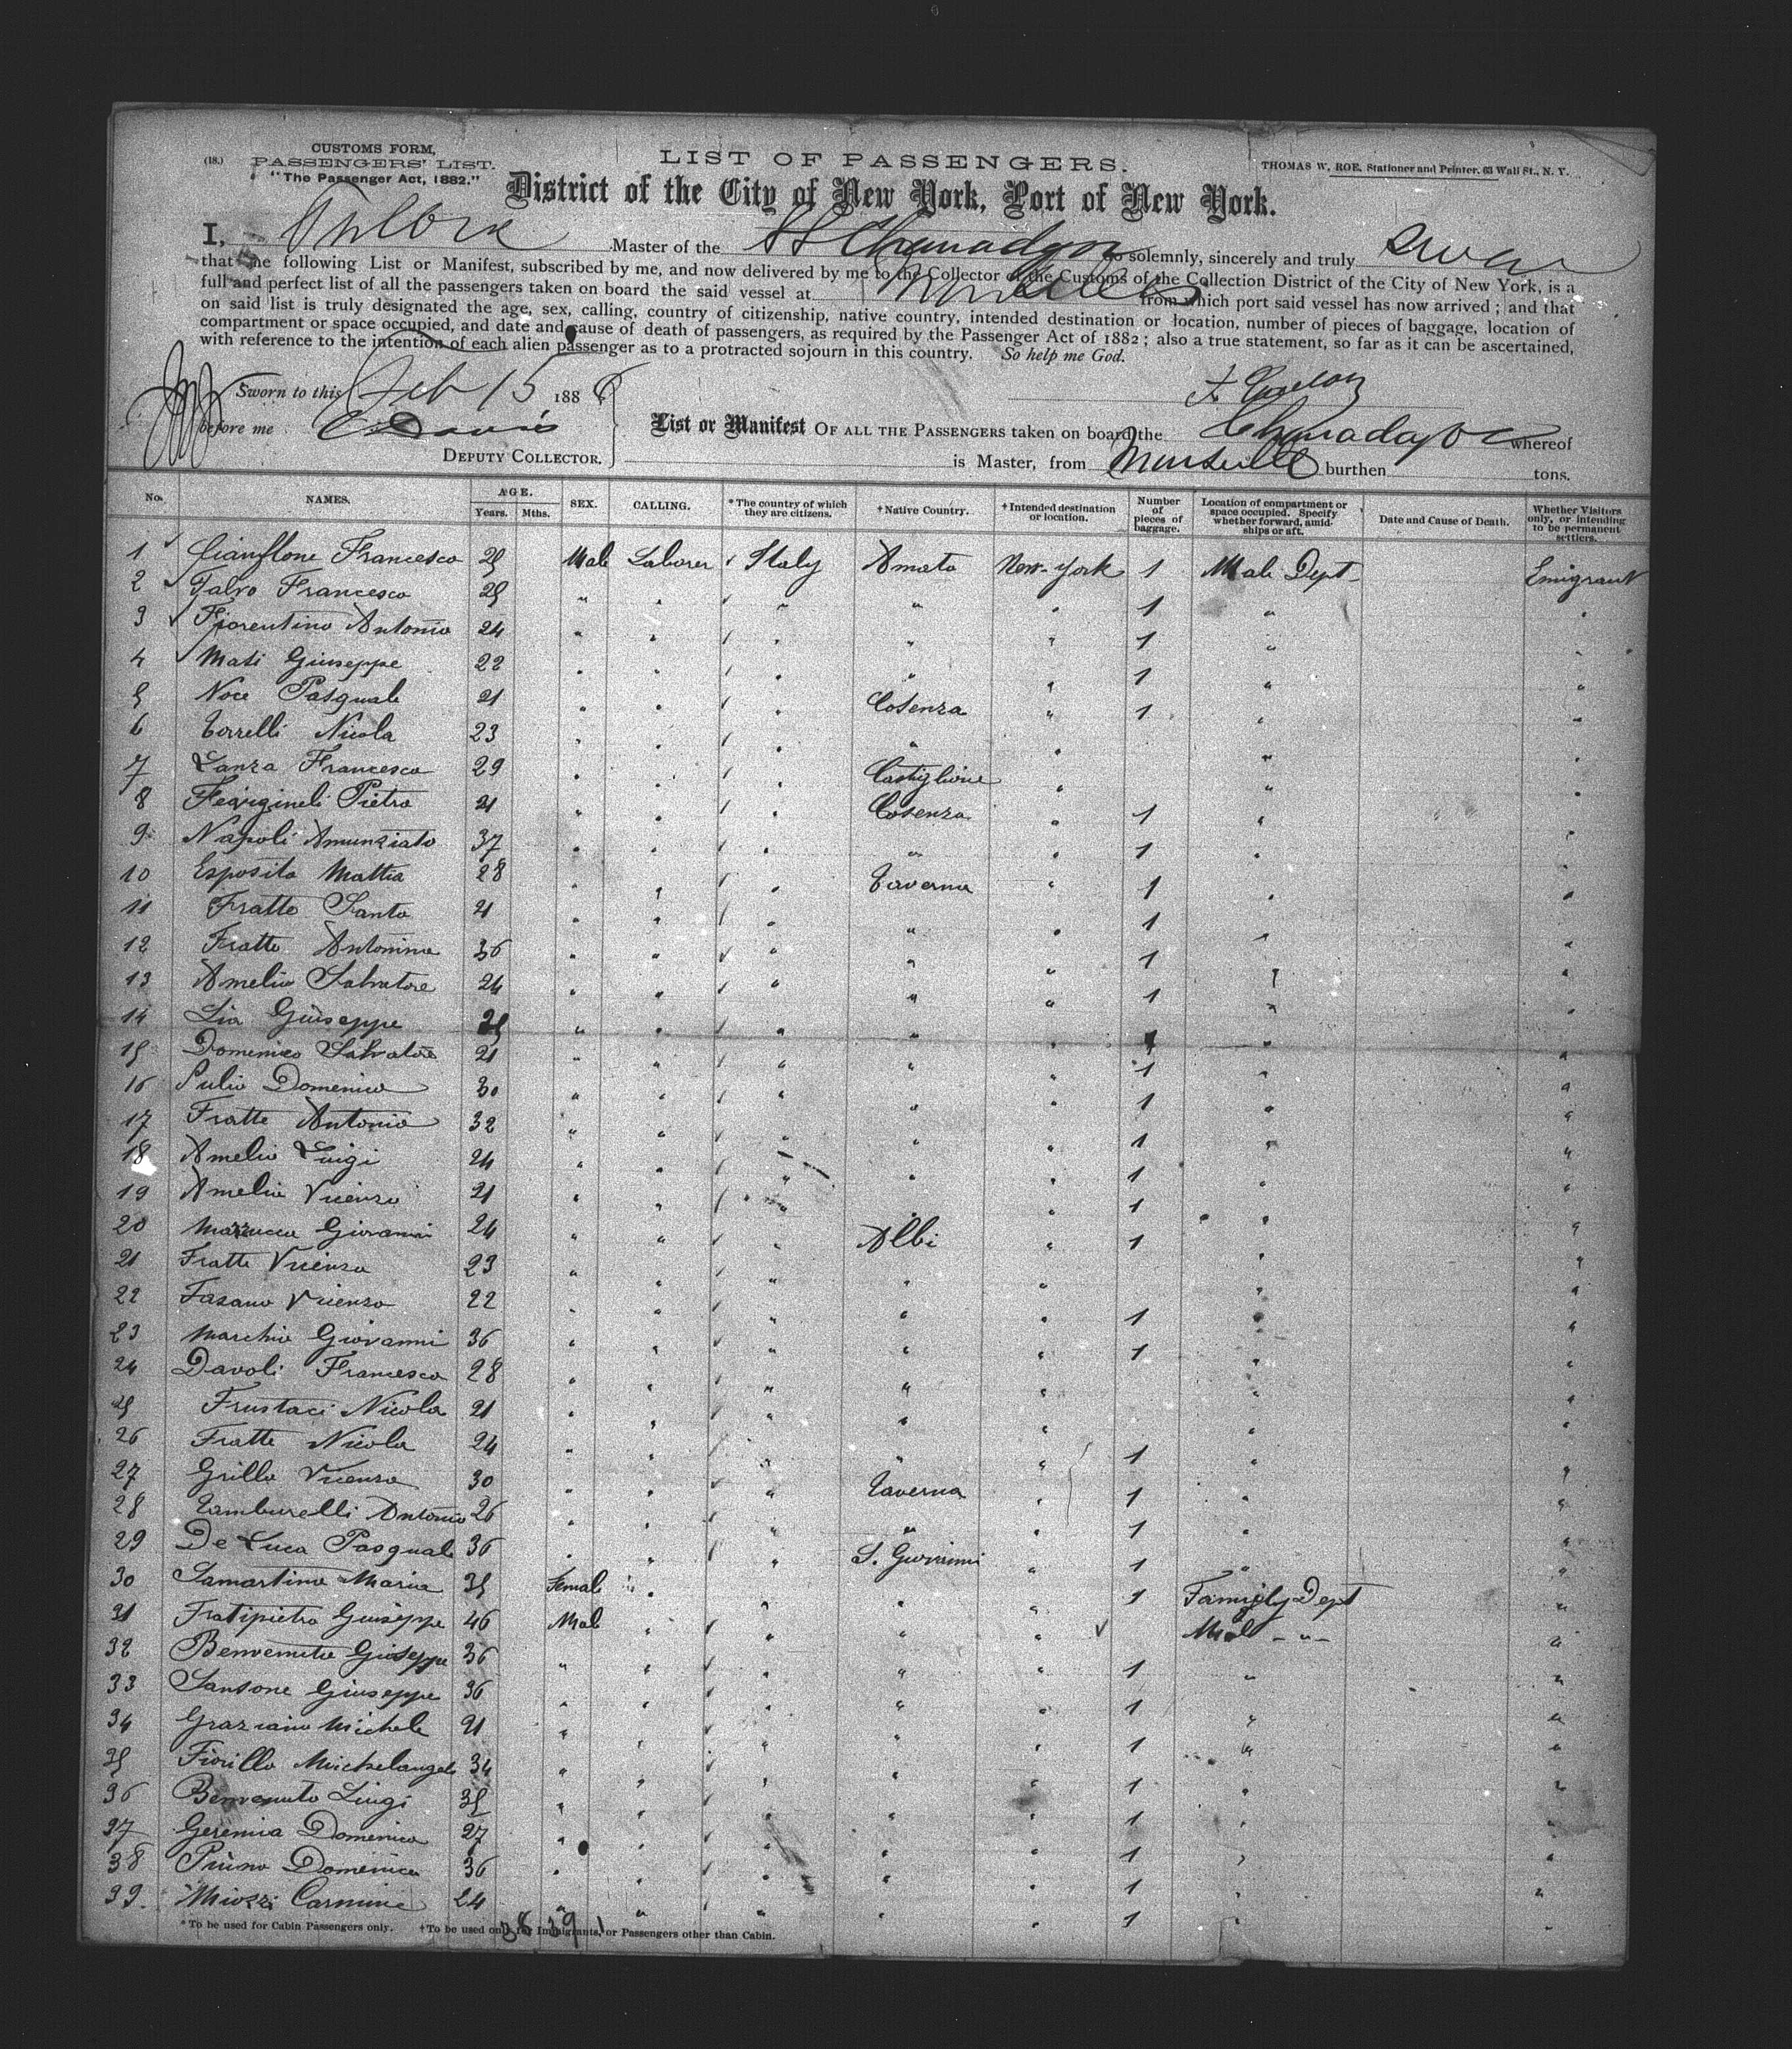 CUSTOMS FORM,
(18.) PASSENGERS' LIST.
"The Passenger Act, 1882."
LIST OF PASSENGERS.
THOMAS W. ROE, Stationer and Printer, 63 Wall St., N. Y.
District of the City of New York, Port of New York.
I, Master of the SS do solemnly, sincerely and truly swear
that the following List or Manifest, subscribed by me, and now delivered by me to the Collector of the Customs of the Collection District of the City of New York, is a
full and perfect list of all the passengers taken on board the said vessel at from which port said vessel has now arrived ; and that
on said list is truly designated the age, sex, calling, country of citizenship, native country, intended destination or location, number of pieces of baggage, location of
compartment or space occupied, and date and cause of death of passengers, as required by the Passenger Act of 1882 ; also a true statement, so far as it can be ascertained,
with reference to the intention of each alien passenger as to a protracted sojourn in this country. So help me God.
Sworn to this Feb 15 188
before me Davis
DEPUTY COLLECTOR.
List or Manifest OF ALL THE PASSENGERS taken on board the whereof
is Master, from Marseille burthen tons.
No. NAMES. AGE. Years. Mths. SEX. CALLING. *The country of which they are citizens. †Native Country. †Intended destination or location. Number of pieces of baggage. Location of compartment or space occupied. Specify whether forward, amidships or aft. Date and Cause of Death. Whether Visitors only, or intending to be permanent settlers.
1 Cianflone Francesco 25 Male Laborer Italy Amato New-York 1 Male Dept Emigrant
2 Talvo Francesco 25 " " " " " 1 " "
3 Fiorentino Antonio 24 " " " " " 1 " "
4 Masi Giuseppe 22 " " " " " 1 " "
5 Noce Pasquale 21 " " " Cosenza " 1 " "
6 Torrelli Nicola 23 " " " " " " "
7 Lanza Francesco 29 " " " Castiglione " " "
8 Pietro 21 " " " Cosenza " 1 " "
9 Napoli Annunziato 37 " " " " " 1 " "
10 Esposito Mattia 28 " " " Taverna " 1 " "
11 Fratto Santo 21 " " " " " 1 " "
12 Fratto Antonino 36 " " " " " 1 " "
13 Amelio Salvatore 24 " " " " " 1 " "
14 Lia Giuseppe 25 " " " " " 1 " "
15 Domenico Salvatore 21 " " " " " 1 " "
16 Pulio Domenico 30 " " " " " 1 " "
17 Fratto Antonio 32 " " " " " 1 " "
18 Amelio Luigi 24 " " " " " 1 " "
19 Amelio Vicenzo 21 " " " " " 1 " "
20 Mazzucca Giovanni 24 " " " Albi " 1 " "
21 Fratto Vicenzo 23 " " " " " " "
22 Fasano Vicenzo 22 " " " " " 1 " "
23 Marchio Giovanni 36 " " " " " 1 " "
24 Davoli Francesco 28 " " " " " " "
25 Frustaci Nicola 21 " " " " " " "
26 Fratto Nicola 24 " " " " " 1 " "
27 Grillo Vicenzo 30 " " " Taverna " 1 " "
28 Tamburelli Antonio 26 " " " " " 1 " "
29 De Luca Pasquale 36 " " " S. Giovanni " 1 " "
30 Samartino Maria 35 Female " " " " 1 Family Dept "
31 Fratipietro Giuseppe 46 Male " " " " Male - " - "
32 Benvenuto Giuseppe 36 " " " " " 1 " "
33 Sansone Giuseppe 36 " " " " " 1 " "
34 Graziano Michele 21 " " " " " 1 " "
35 Fiorillo Michelangelo 34 " " " " " 1 " "
36 Benvenuto Luigi 35 " " " " " 1 " "
37 Geremia Domenico 27 " " " " " 1 " "
38 Domenico 36 " " " " " 1 " "
39. Miozzi Carmine 24 " " " " " 1 " "
*To be used for Cabin Passengers only. †To be used only for Immigrants, or Passengers other than Cabin.